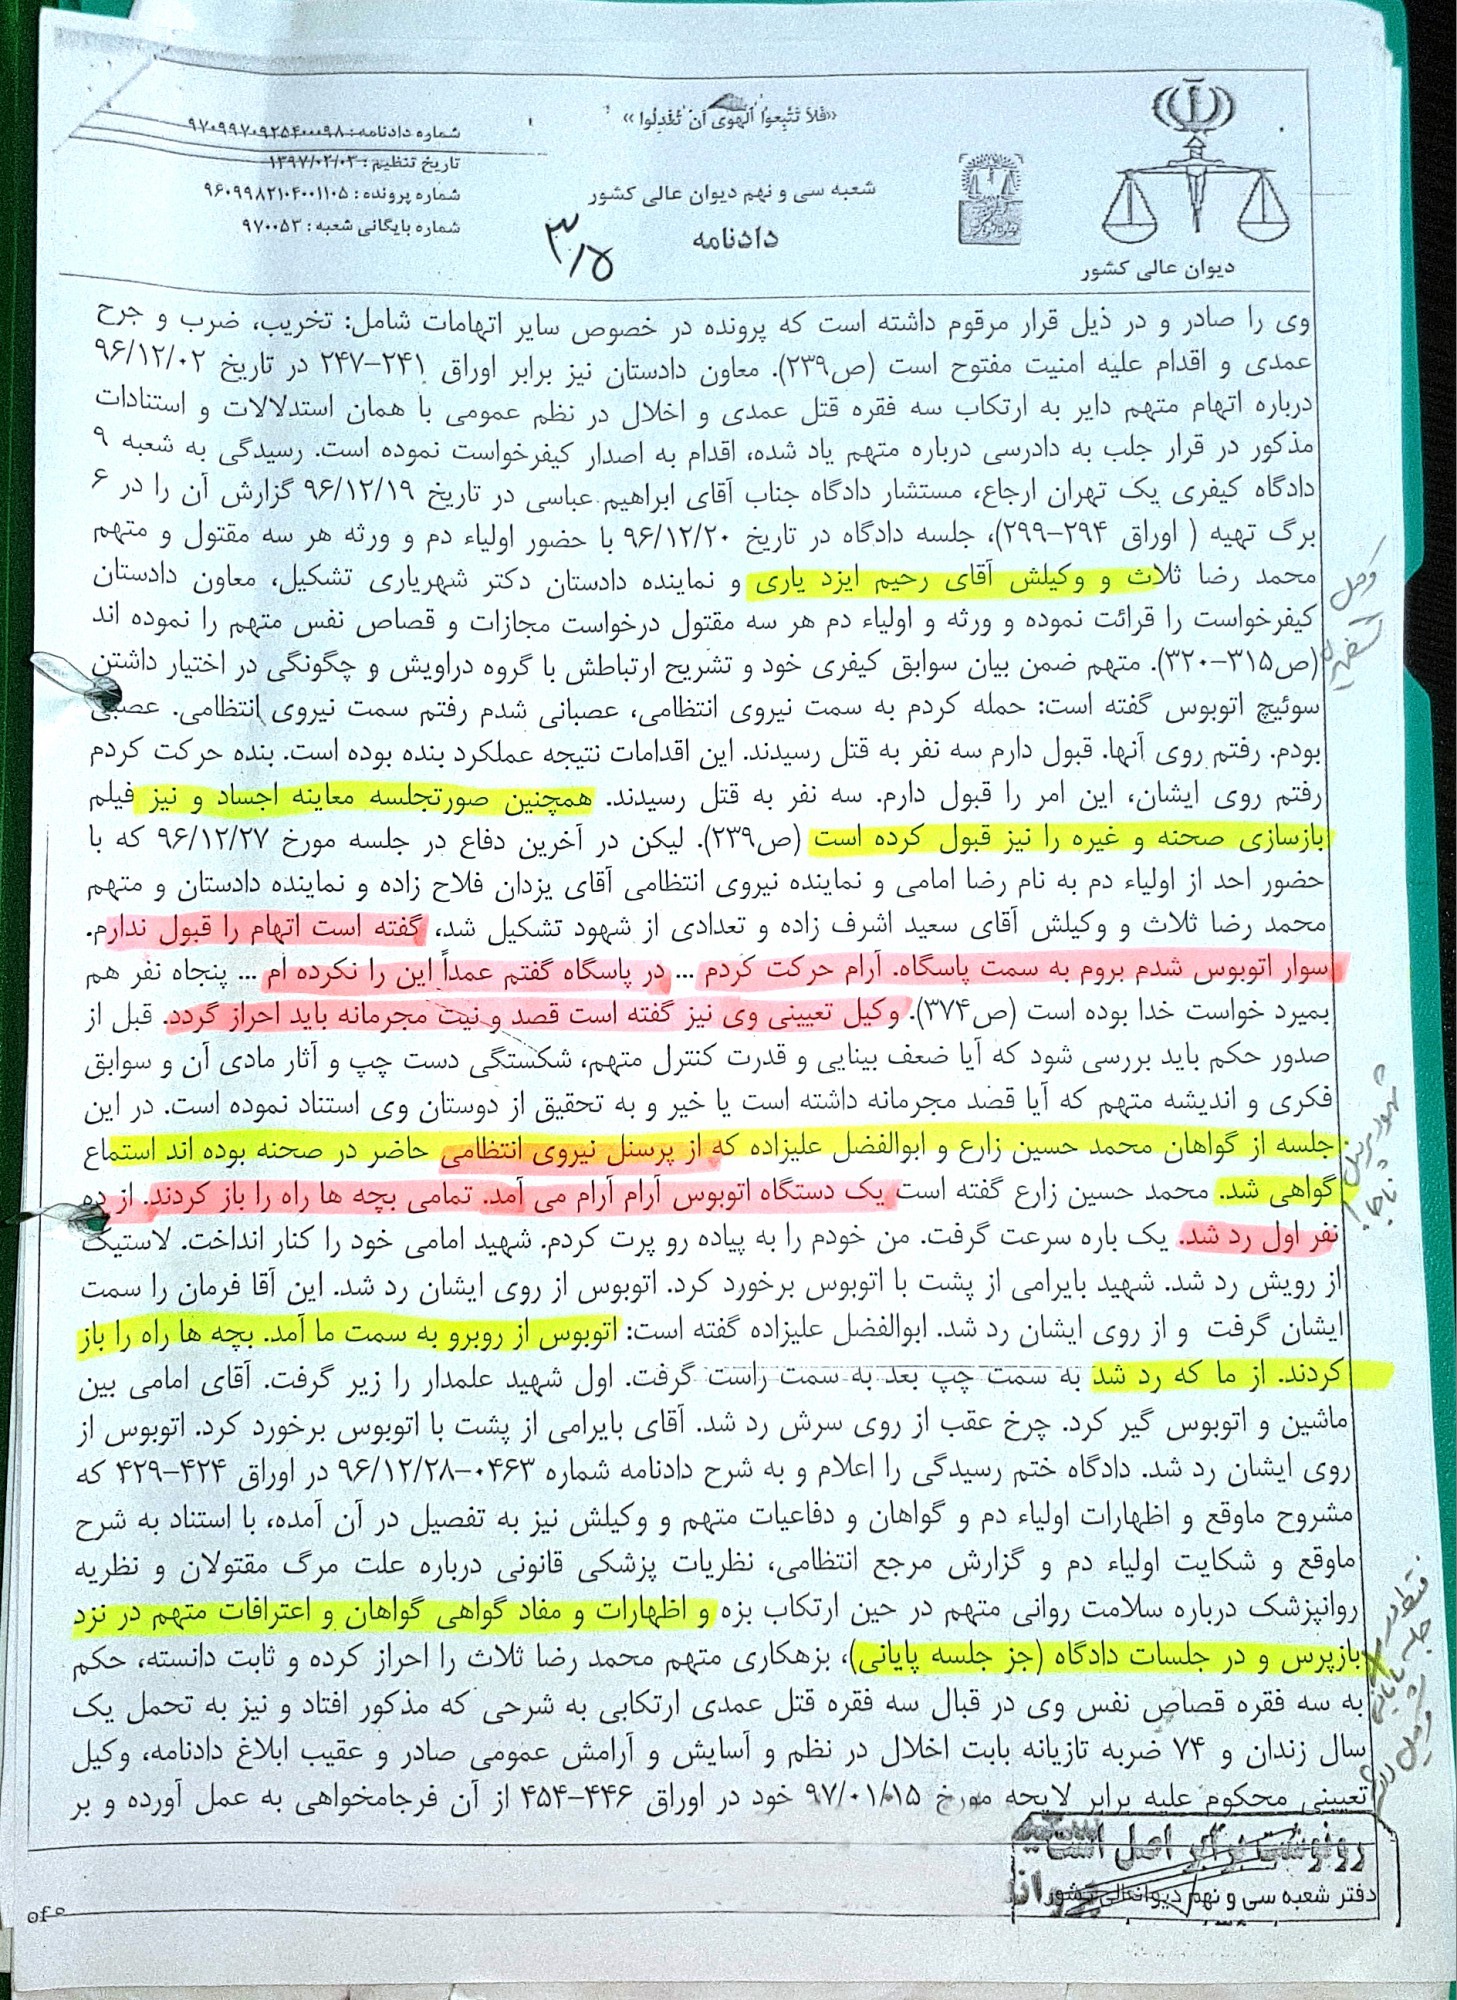 «فَلاَ تَتَّبِعوُا الْهَوی اَنْ تَعْدِلُوا»
شماره دادنامه: ۹۷۰۹۹۷۰۹۲۵۴۰۰۰۹۸
تاریخ تنظیم: ۱۳۹۷/۰۲/۰۳
شماره پرونده: ۹۶۰۹۹۸۲۱۰۴۰۰۱۱۰۵
شماره بایگانی شعبه: ۹۷۰۰۵۳
شعبه سی و نهم دیوان عالی کشور
دادنامه
۳/۵
دیوان عالی کشور
وی را صادر و در ذیل قرار مرقوم داشته است که پرونده در خصوص سایر اتهامات شامل: تخریب، ضرب و جرح
عمدی و اقدام علیه امنیت مفتوح است (ص۲۳۹). معاون دادستان نیز برابر اوراق ۲۴۱-۲۴۷ در تاریخ ۹۶/۱۲/۰۲
درباره اتهام متهم دایر به ارتکاب سه فقره قتل عمدی و اخلال در نظم عمومی با همان استدلالات و استنادات
مذکور در قرار جلب به دادرسی درباره متهم یاد شده، اقدام به اصدار کیفرخواست نموده است. رسیدگی به شعبه ۹
دادگاه کیفری یک تهران ارجاع، مستشار دادگاه جناب آقای ابراهیم عباسی در تاریخ ۹۶/۱۲/۱۹ گزارش آن را در ۶
برگ تهیه ( اوراق ۲۹۴-۲۹۹)، جلسه دادگاه در تاریخ ۹۶/۱۲/۲۰ با حضور اولیاء دم و ورثه هر سه مقتول و متهم
محمد رضا ثلاث و وکیلش آقای رحیم ایزد یاری و نماینده دادستان دکتر شهریاری تشکیل، معاون دادستان
کیفرخواست را قرائت نموده و ورثه و اولیاء دم هر سه مقتول درخواست مجازات و قصاص نفس متهم را نموده اند
(ص۳۱۵-۳۲۰). متهم ضمن بیان سوابق کیفری خود و تشریح ارتباطش با گروه دراویش و چگونگی در اختیار داشتن
سوئیچ اتوبوس گفته است: حمله کردم به سمت نیروی انتظامی، عصبانی شدم رفتم سمت نیروی انتظامی. عصبی
بودم. رفتم روی آنها. قبول دارم سه نفر به قتل رسیدند. این اقدامات نتیجه عملکرد بنده بوده است. بنده حرکت کردم
رفتم روی ایشان، این امر را قبول دارم. سه نفر به قتل رسیدند. همچنین صورتجلسه معاینه اجساد و نیز فیلم
بازسازی صحنه و غیره را نیز قبول کرده است (ص۲۳۹). لیکن در آخرین دفاع در جلسه مورخ ۹۶/۱۲/۲۷ که با
حضور احد از اولیاء دم به نام رضا امامی و نماینده نیروی انتظامی آقای یزدان فلاح زاده و نماینده دادستان و متهم
محمد رضا ثلاث و وکیلش آقای سعید اشرف زاده و تعدادی از شهود تشکیل شد، گفته است اتهام را قبول ندارم.
سوار اتوبوس شدم بروم به سمت پاسگاه. آرام حرکت کردم ... در پاسگاه گفتم عمداً این را نکرده ام ... پنجاه نفر هم
بمیرد خواست خدا بوده است (ص۳۷۴). وکیل تعیینی وی نیز گفته است قصد و نیت مجرمانه باید احراز گردد. قبل از
صدور حکم باید بررسی شود که آیا ضعف بینایی و قدرت کنترل متهم، شکستگی دست چپ و آثار مادی آن و سوابق
فکری و اندیشه متهم که آیا قصد مجرمانه داشته است یا خیر و به تحقیق از دوستان وی استناد نموده است. در این
جلسه از گواهان محمد حسین زارع و ابوالفضل علیزاده که از پرسنل نیروی انتظامی حاضر در صحنه بوده اند استماع
گواهی شد. محمد حسین زارع گفته است یک دستگاه اتوبوس آرام آرام می آمد. تمامی بچه ها راه را باز کردند. از ده
نفر اول رد شد. یک باره سرعت گرفت. من خودم را به پیاده رو پرت کردم. شهید امامی خود را کنار انداخت. لاستیک
از رویش رد شد. شهید بایرامی از پشت با اتوبوس برخورد کرد. اتوبوس از روی ایشان رد شد. این آقا فرمان را سمت
ایشان گرفت و از روی ایشان رد شد. ابوالفضل علیزاده گفته است: اتوبوس از روبرو به سمت ما آمد. بچه ها راه را باز
کردند. از ما که رد شد به سمت چپ بعد به سمت راست گرفت. اول شهید علمدار را زیر گرفت. آقای امامی بین
ماشین و اتوبوس گیر کرد. چرخ عقب از روی سرش رد شد. آقای بایرامی از پشت با اتوبوس برخورد کرد. اتوبوس از
روی ایشان رد شد. دادگاه ختم رسیدگی را اعلام و به شرح دادنامه شماره ۰۴۶۳-۹۶/۱۲/۲۸ در اوراق ۴۲۴-۴۲۹ که
مشروح ماوقع و اظهارات اولیاء دم و گواهان و دفاعیات متهم و وکیلش نیز به تفصیل در آن آمده، با استناد به شرح
ماوقع و شکایت اولیاء دم و گزارش مرجع انتظامی، نظریات پزشکی قانونی درباره علت مرگ مقتولان و نظریه
روانپزشک درباره سلامت روانی متهم در حین ارتکاب بزه و اظهارات و مفاد گواهی گواهان و اعترافات متهم در نزد
بازپرس و در جلسات دادگاه (جز جلسه پایانی)، بزهکاری متهم محمد رضا ثلاث را احراز کرده و ثابت دانسته، حکم
به سه فقره قصاص نفس وی در قبال سه فقره قتل عمدی ارتکابی به شرحی که مذکور افتاد و نیز به تحمل یک
سال زندان و ۷۴ ضربه تازیانه بابت اخلال در نظم و آسایش و آرامش عمومی صادر و عقیب ابلاغ دادنامه، وکیل
تعیینی محکوم علیه برابر لایحه مورخ ۹۷/۰۱/۱۵ خود در اوراق ۴۴۶-۴۵۴ از آن فرجامخواهی به عمل آورده و بر
رونوشت برابر اصل است
دفتر شعبه سی و نهم دیوانعالی کشور
وکیل
تسخیری
شهود پرسنل
ناجا!
فقط در
جلسه پایانی